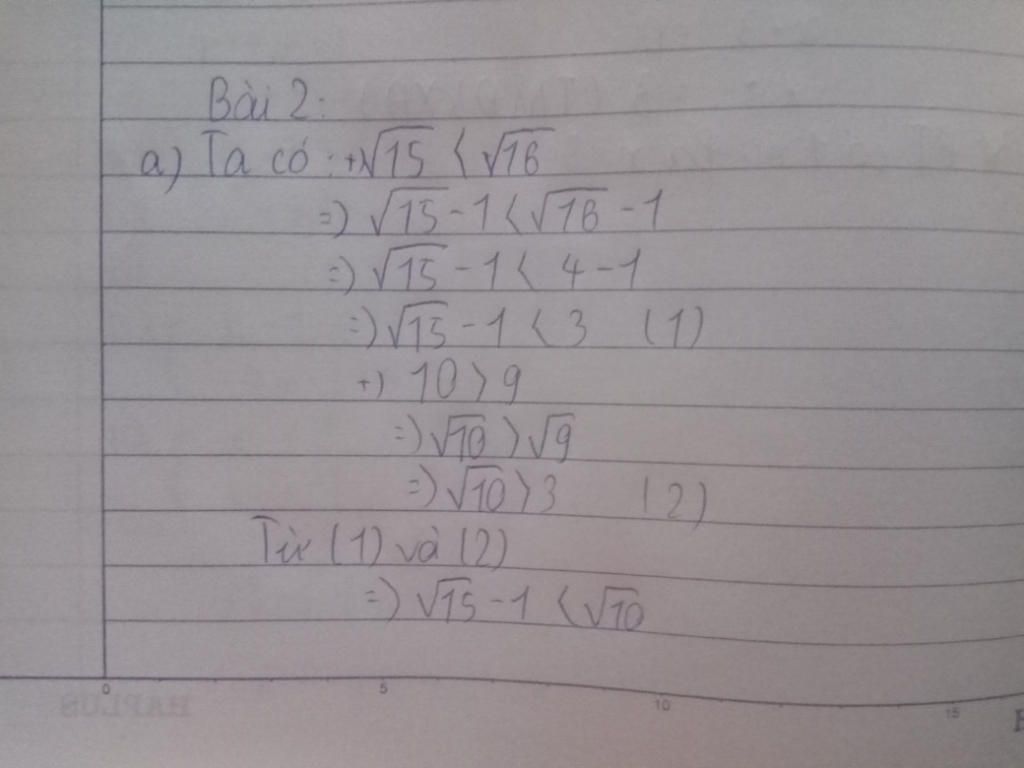 Bài 2:
a) Ta có: +) √15 < √16
=) √15 - 1 < √16 - 1
=) √15 - 1 < 4 - 1
=) √15 - 1 < 3 (1)
+) 10 > 9
=) √10 > √9
=) √10 > 3 (2)
Từ (1) và (2)
=) √15 - 1 < √10
0 5 10 15
HAPLUS